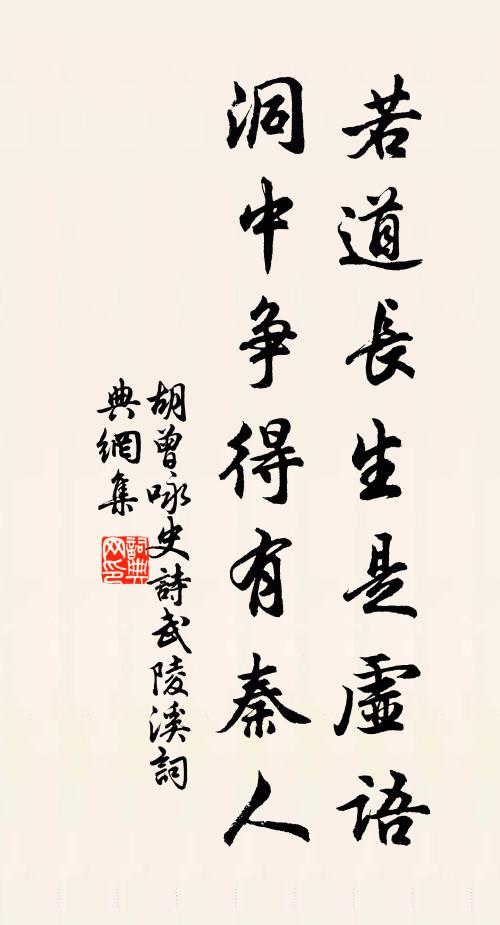 若道長生是虛語
洞中争得有秦人
胡曾咏史詩武陵溪詞
典網集
詞典网印